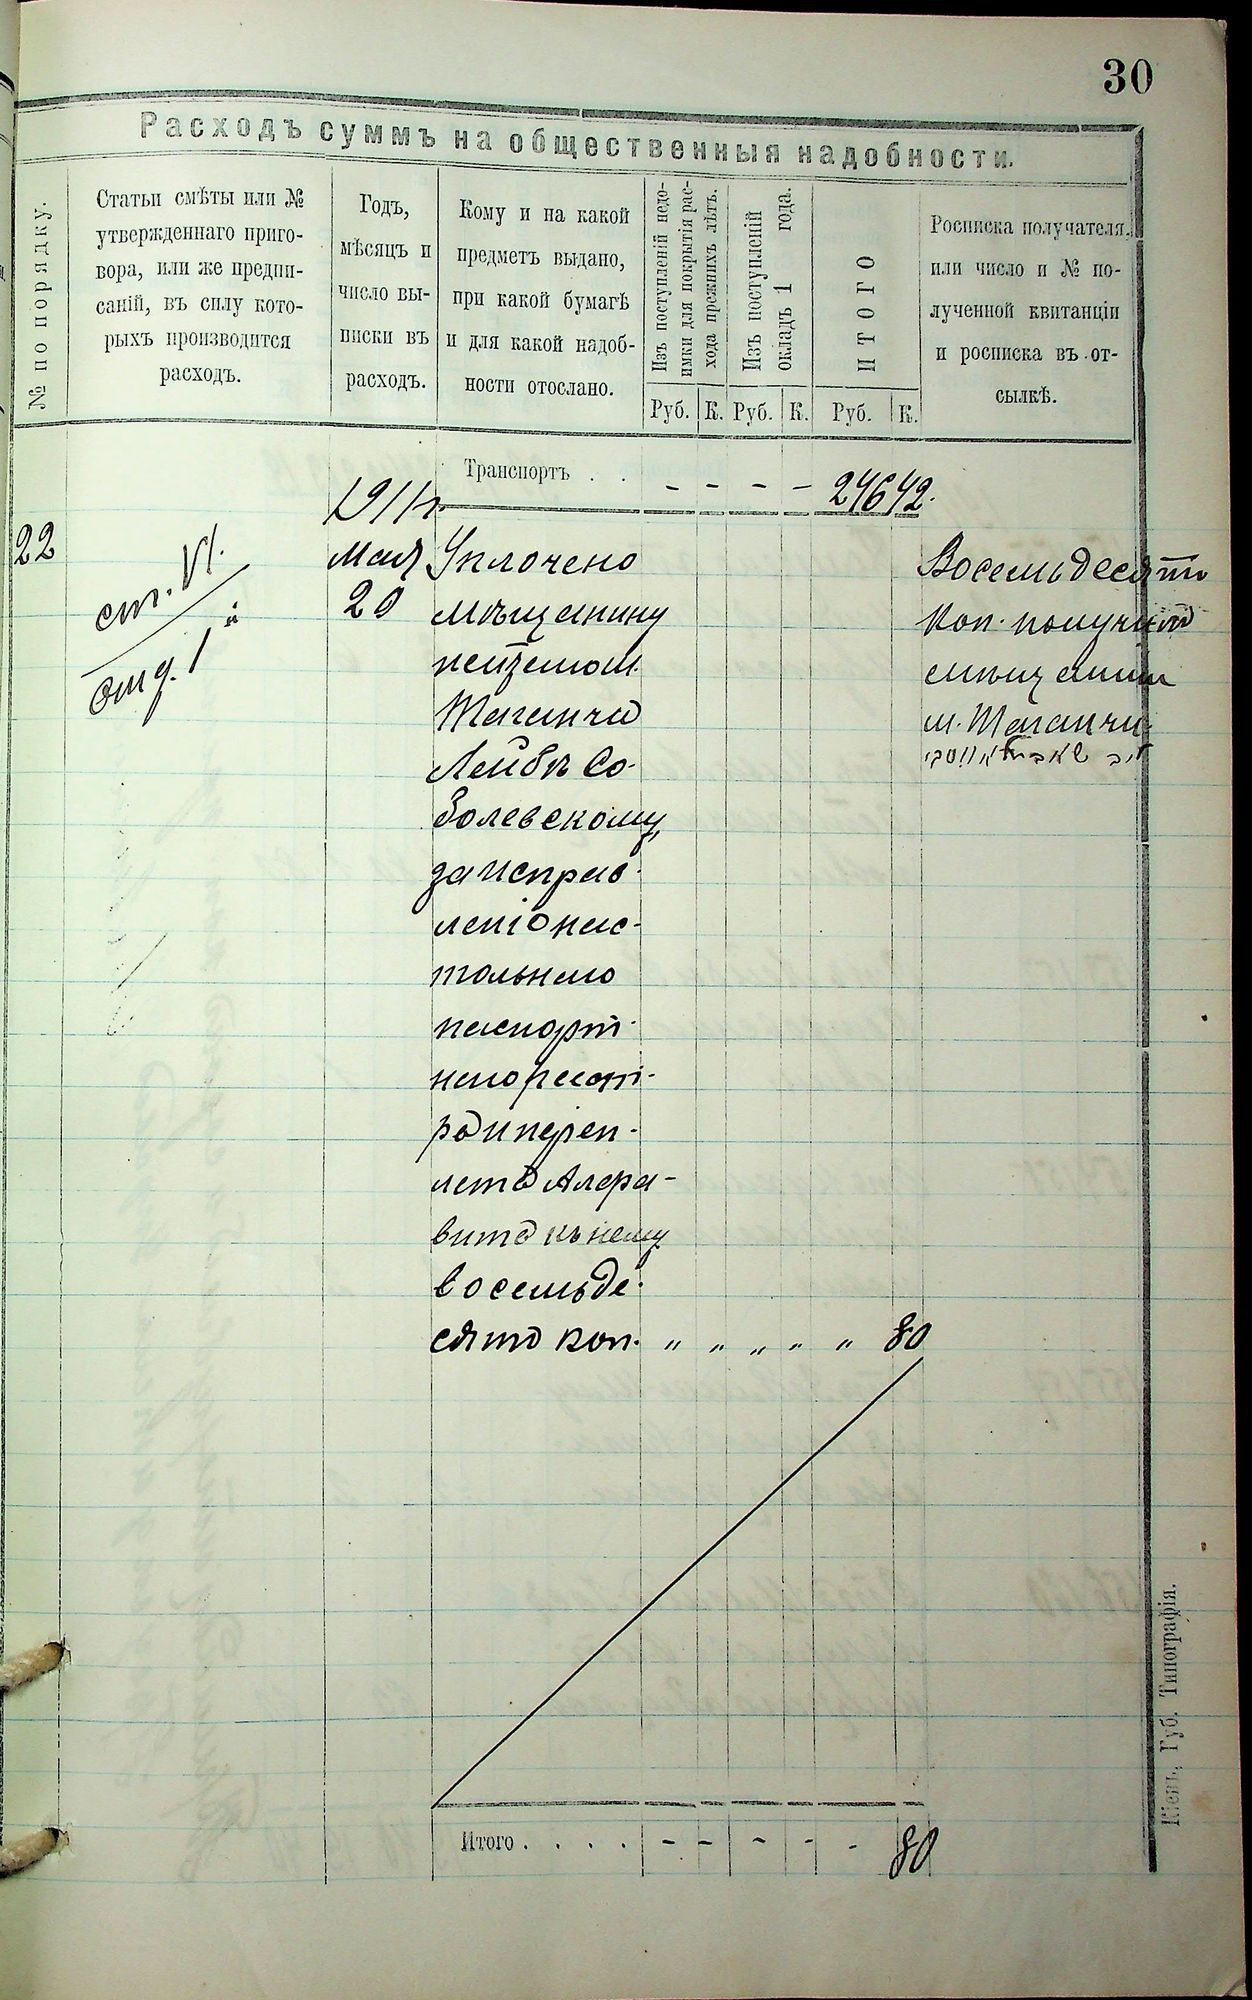 30
Расходъ суммъ на общественныя надобности.
№ по порядку.
Статьи смѣты или №
утвержденнаго приго-
вора, или же предпи-
саній, въ силу кото-
рыхъ производится
расходъ.
Годъ,
мѣсяцъ и
число вы-
писки въ
расходъ.
Кому и на какой
предметъ выдано,
при какой бумагѣ
и для какой надоб-
ности отослано.
Изъ поступленій недо-
имки для покрытія рас-
хода прежнихъ лѣтъ.
Изъ поступленій
окладъ 1 года.
ИТОГО
Росписка получателя,
или число и № по-
лученной квитанціи
и росписка въ от-
сылкѣ.
Руб. К. Руб. К. Руб. К.
Транспортъ . . - - - - 246 42.
1911 г.
22
ст. VI.
отд. 1й
Мая
20
Уплочено
мѣщанину
м.
Таганчи
Лейбѣ Со-
болевскому
за исправ-
леніе нас-
тольнаго
паспорт-
наго реест-
ра и переп-
летъ Алфа-
вита къ нему
восемьде-
сятъ коп. „ „ „ „ „ 80
Восемьдесятъ
коп. получилъ
мѣщанинъ
м. Таганчи
Итого . . . . - - - - - 80
Кіевъ, Губ. Типографія.